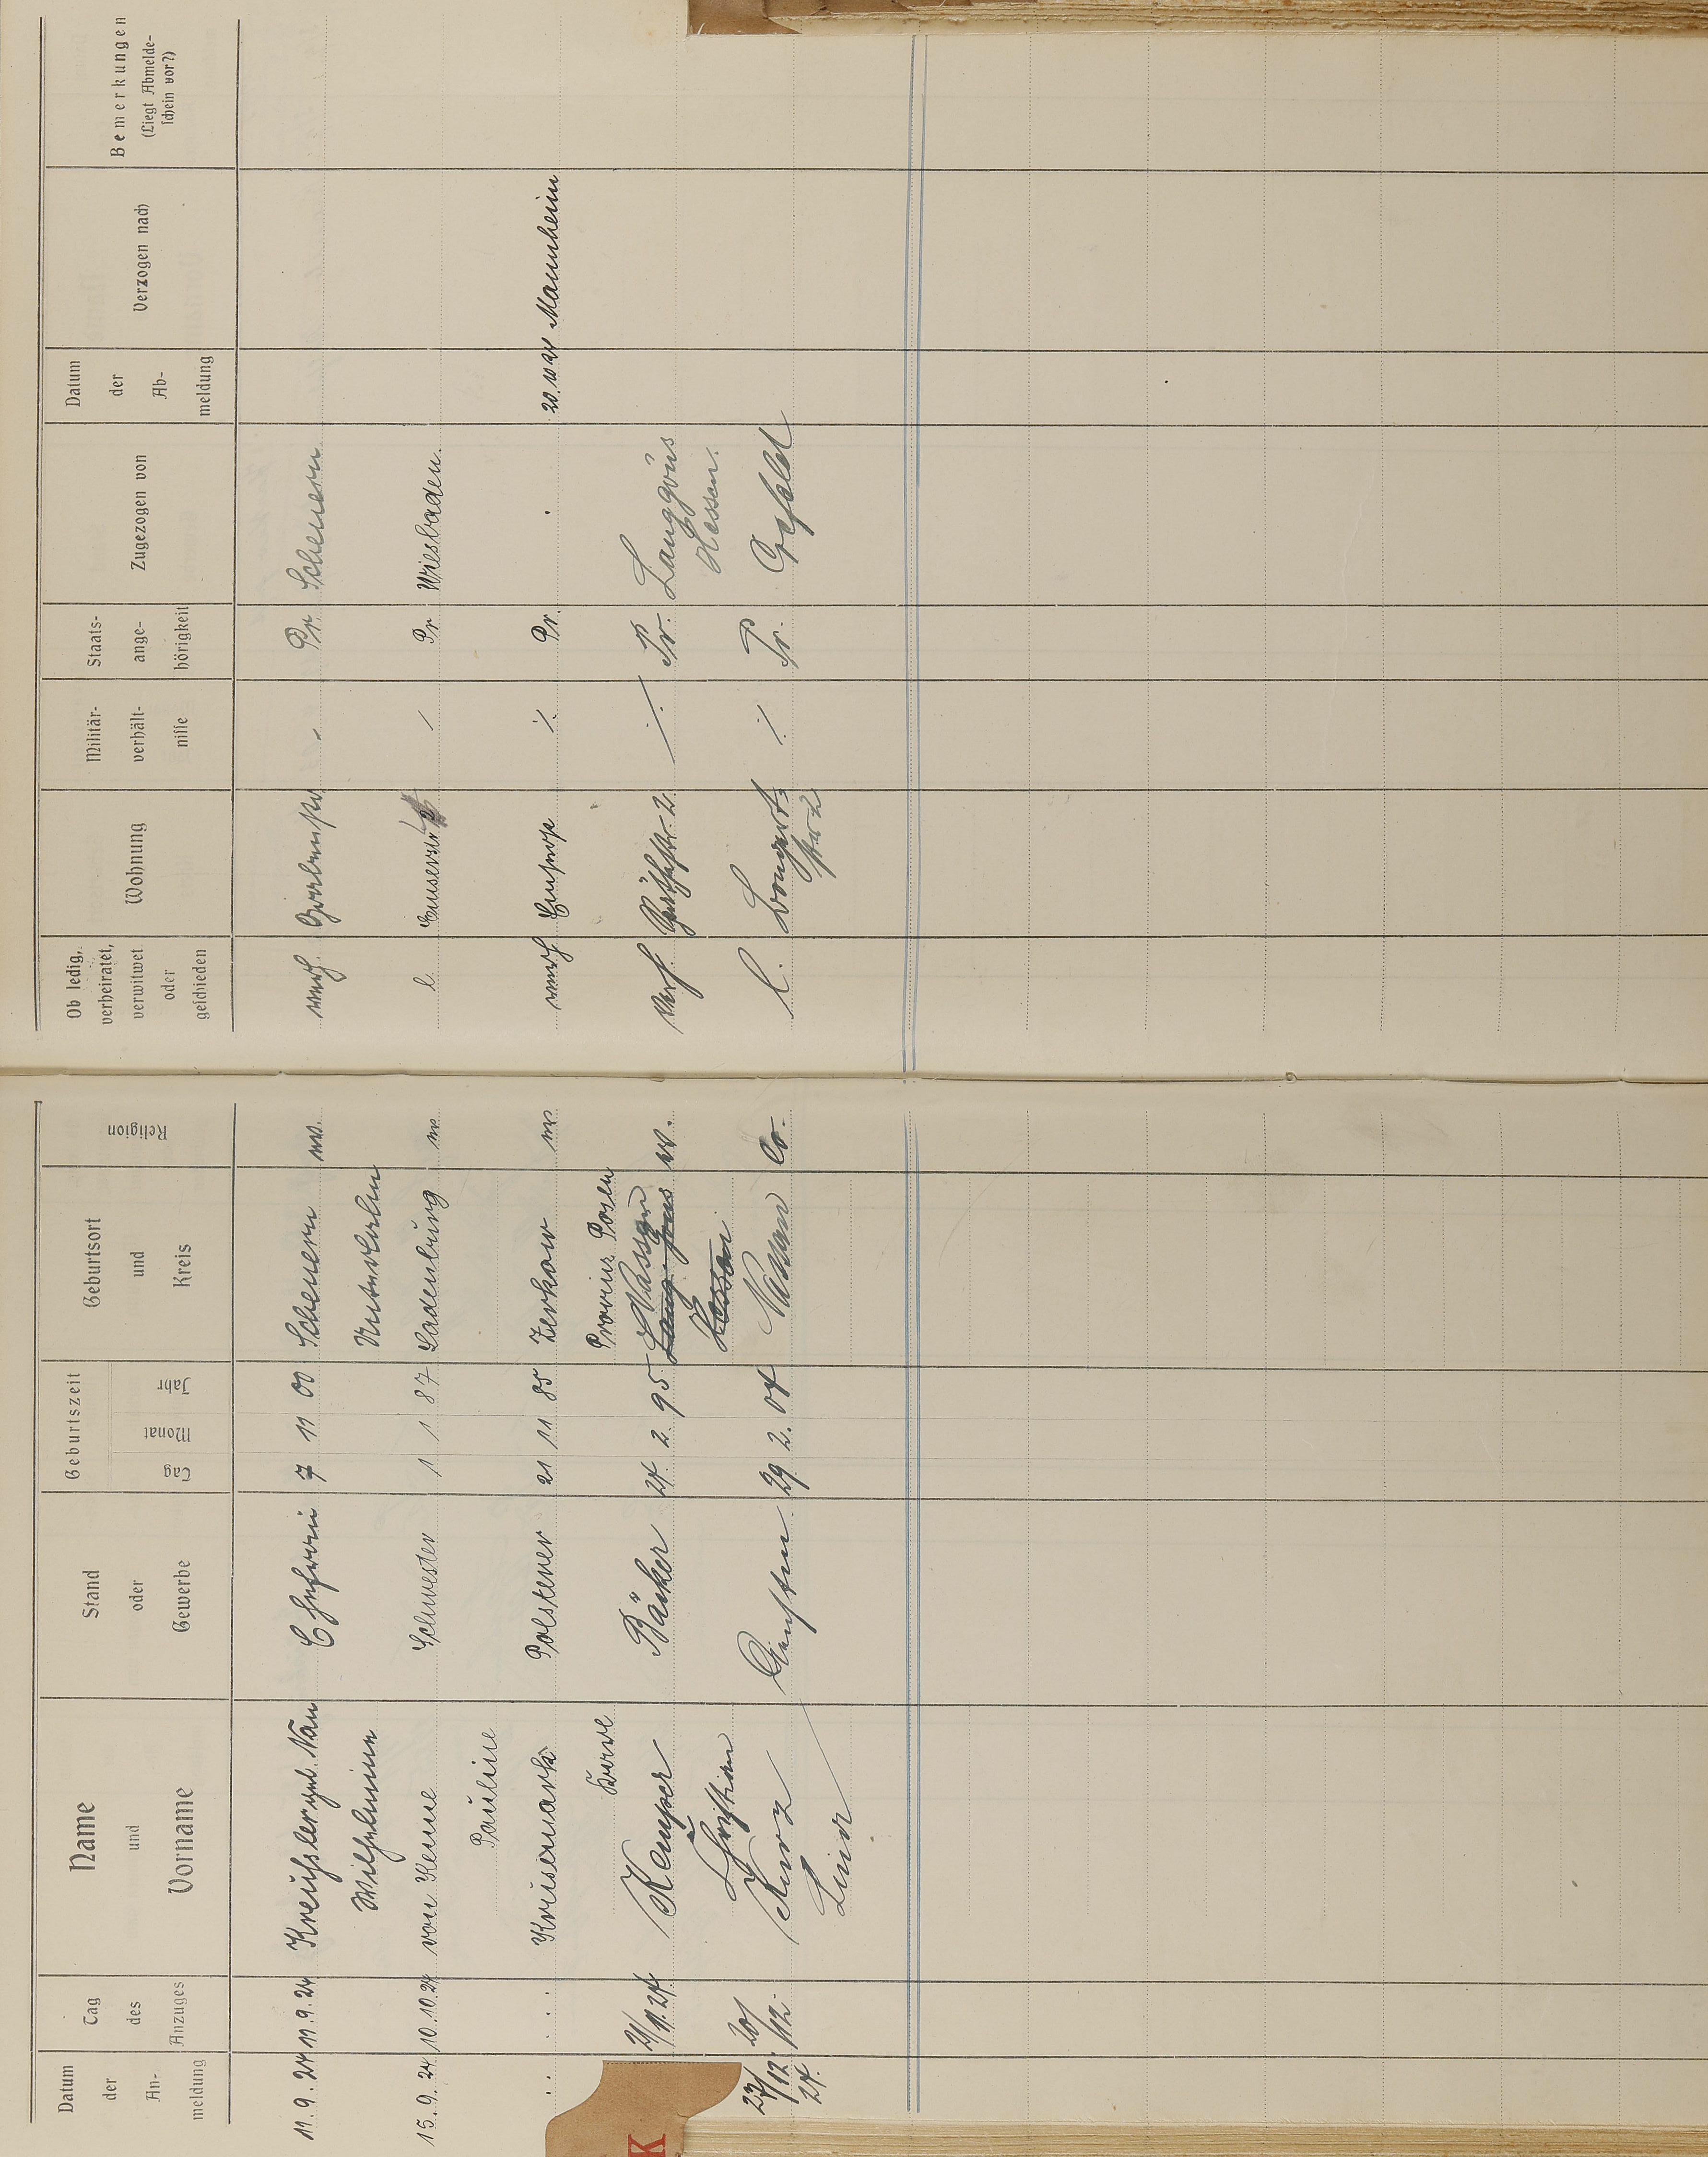 Datum der An- meldung
Tag des Anzuges
Name und Vorname
Stand oder Gewerbe
Geburtszeit
Tag Monat Jahr
Geburtsort und Kreis
Religion
Ob ledig, verheiratet, verwitwet oder geschieden
Wohnung
Militär- verhält- nisse
Staats- ange- hörigkeit
Zugezogen von
Datum der Ab- meldung
Verzogen nach
Bemerkungen
(Liegt Abmelde- schein vor?)
11. 9. 24 11. 9. 24 Kreuhsler geb. Nau Ehefrau 7 11 00 Scheuern ev. verh Grabenstr - Pr. Scheuern
Wilhelmine Unterlahn
15. 9. 24 10. 10. 24 von Kenne Schwester 1 1 87 Ladenburg ev. l. Emserstr / Pr Wiesbaden.
Pauline
. . . . . Krusemark Polsterer 21 11 85 Zerkow ev verh Emserstr ./. Pr. . 20. 10 24 Mannheim
Provinz Posen
21/11. 24 Kemper Bäcker 24. 2. 95 Nassau ev. verh. 2 ./. Pr. Langgöns
Christian Lang-Göns Hessen Hessen.
23/12. 24. 20/12. Kurz 29 2. 04 Nassau l. Bongert- ./. Pr. Crefeld
str 2
K